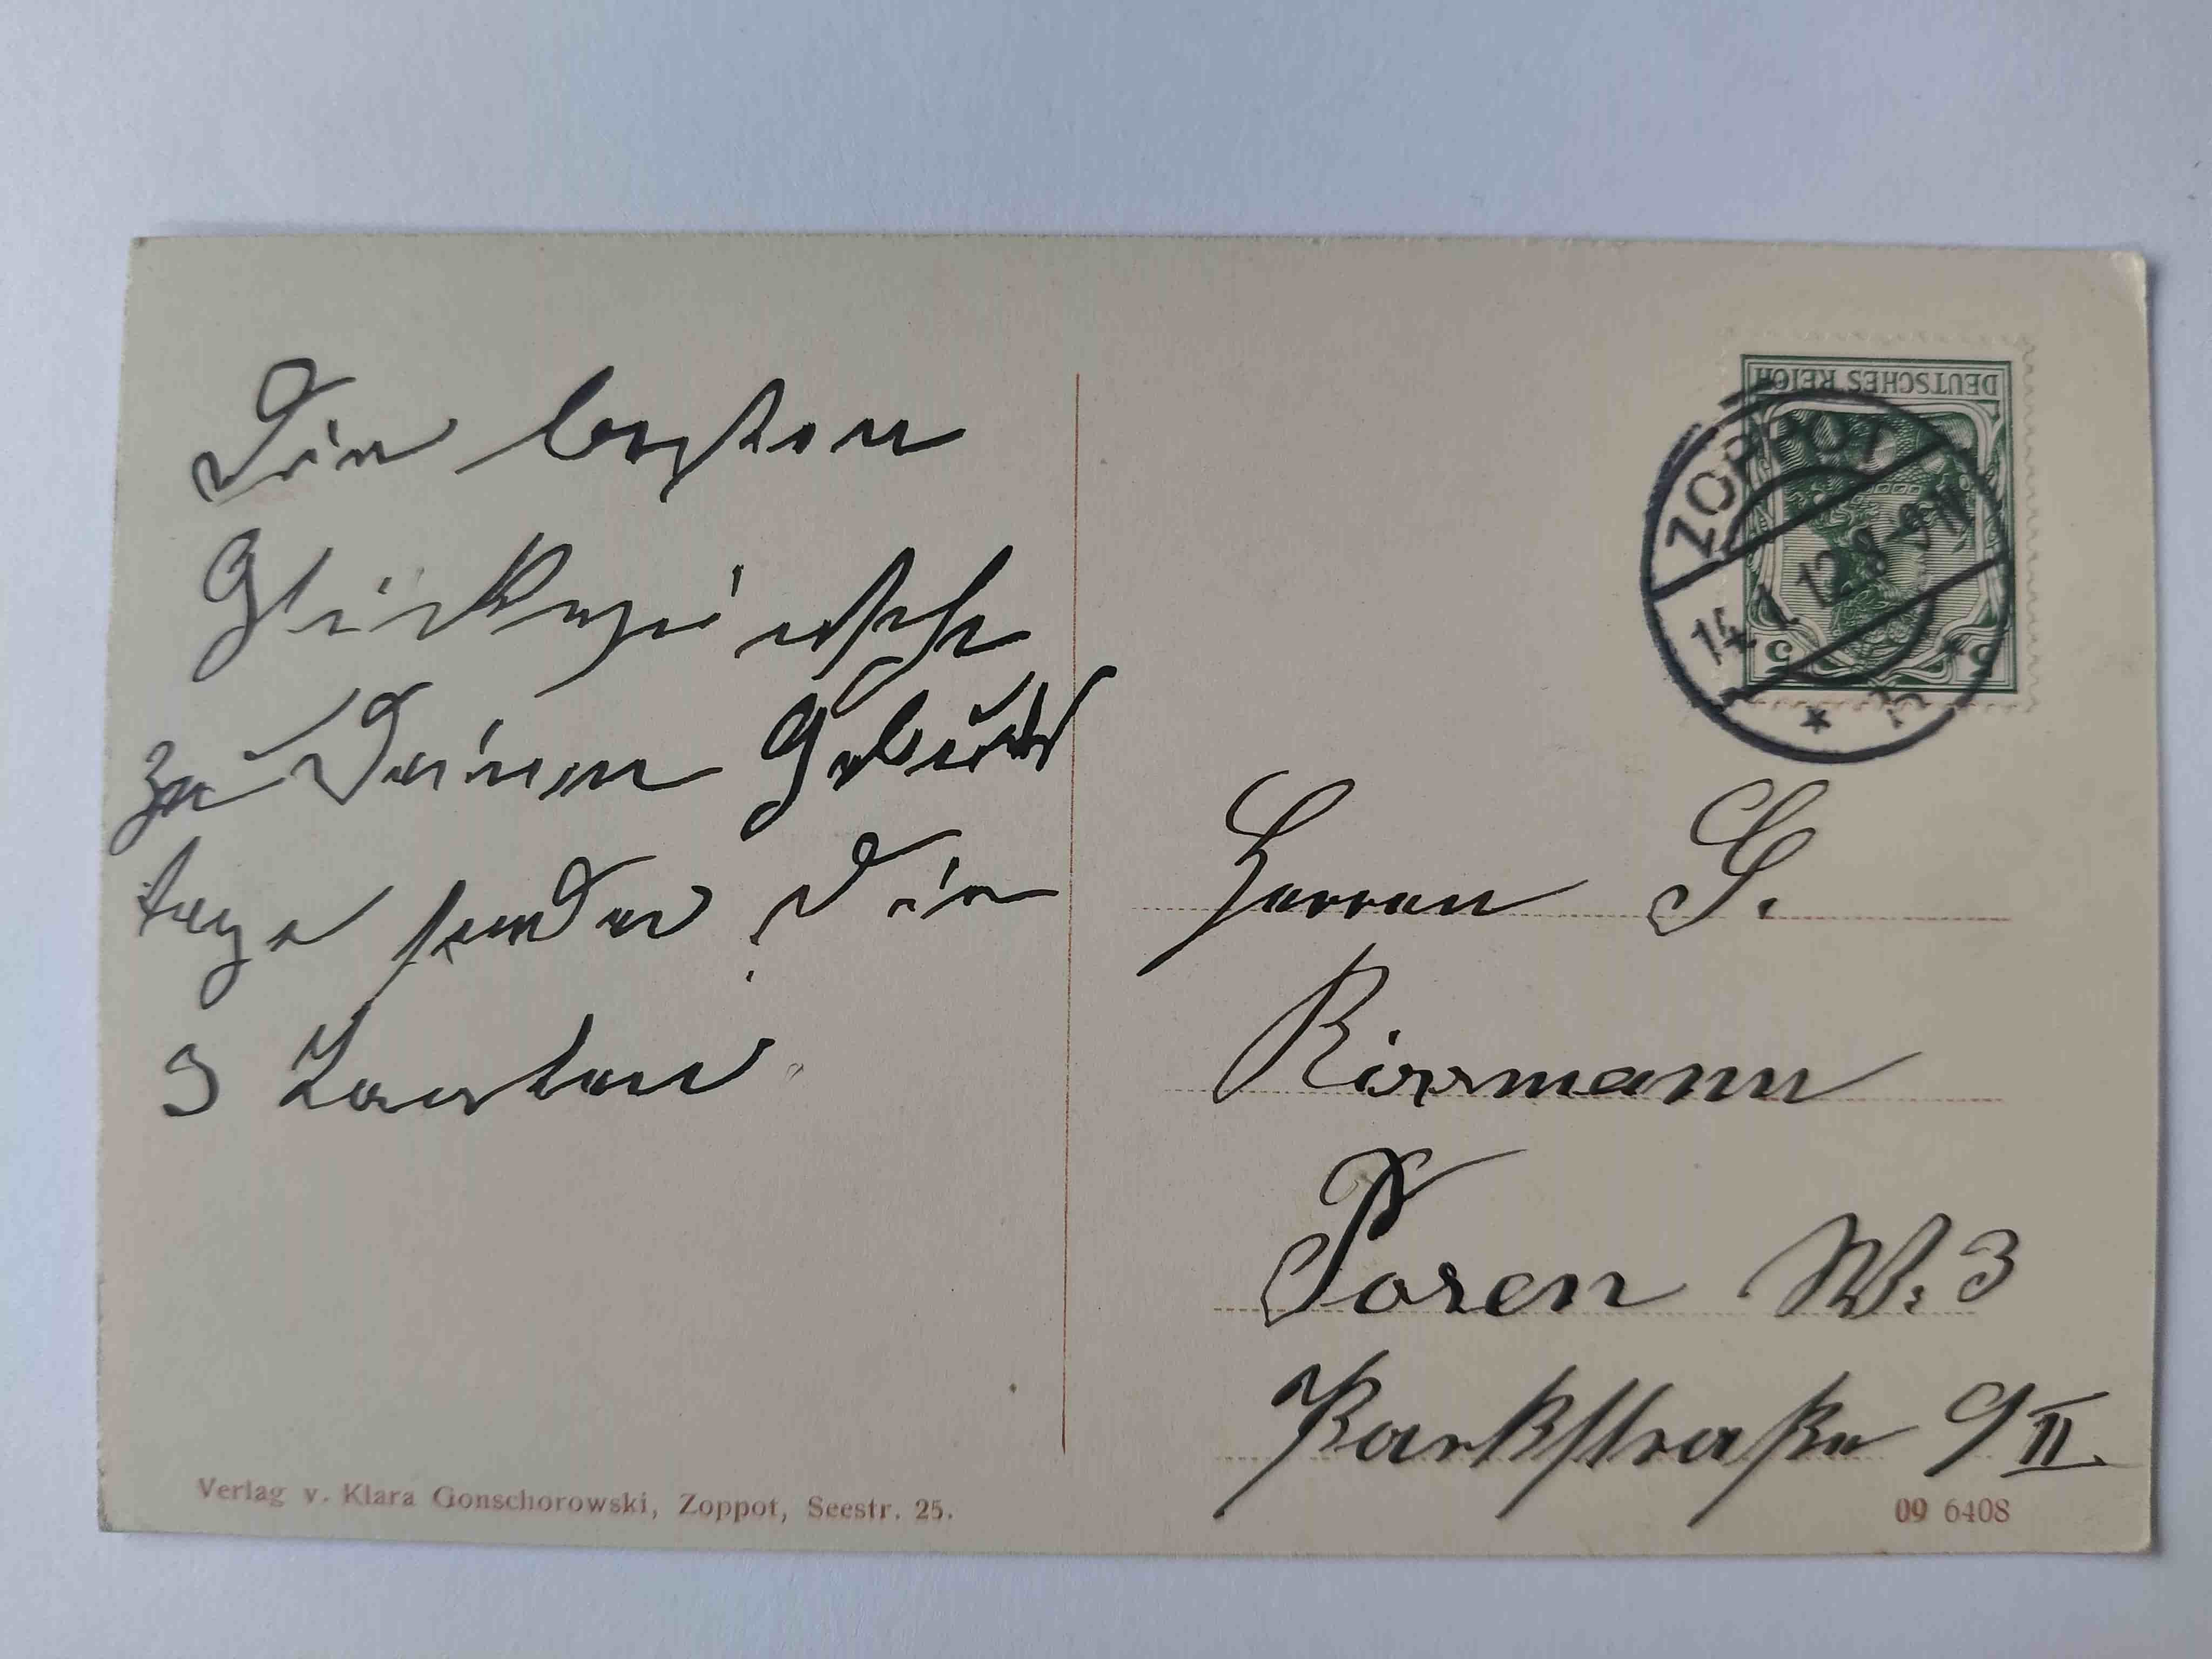 Die besten
Glückwünsche
zu Deinem Geburts
tage senden Die
3 Tanten
DEUTSCHES REICH
ZOPPOT
14.1.12.8-9N
5 5
Herrn G.
Rissmann
Posen W. 3
Parkstraße 9 II.
Verlag v. Klara Gonschorowski, Zoppot, Seestr. 25.
09 6408